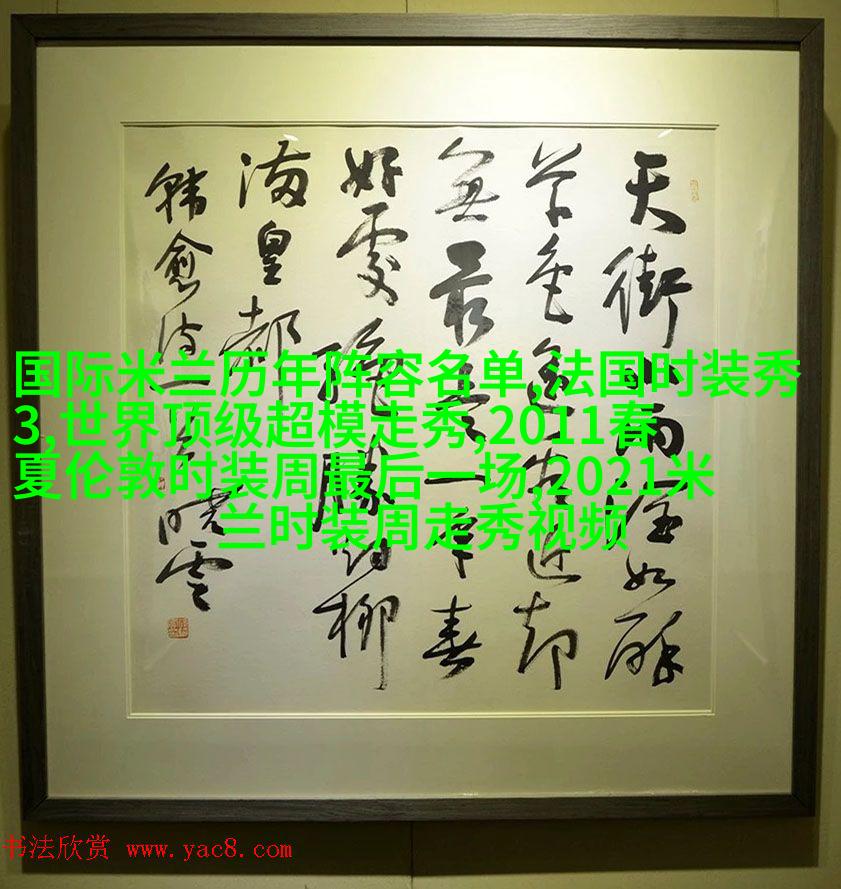 天街小雨润如酥
草色遥看近却
無最是一年春
好處绝勝烟柳
满皇都
韩愈诗一首
国际米兰历年阵容名单,法国时装秀
3,世界顶级超模走秀,2011春
夏伦敦时装周最后一场,2021米
兰时装周走秀视频
书法欣赏 www.yac8.com